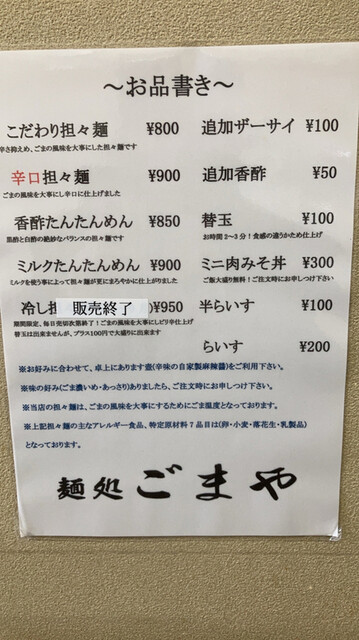 ～お品書き～
こだわり担々麺 ¥800
辛さ抑えめ、ごまの風味を大事にした担々麺です
辛口担々麺 ¥900
ごまの風味を大事にし辛口に仕上げました
香酢たんたんめん ¥850
黒酢と白酢の絶妙なバランスの担々麺です
ミルクたんたんめん ¥900
ミルクを使う事によって担々麺が更にまろやかに仕上がりました
冷し担 販売終了 )¥950
期間限定、毎日売切次第終了！ごまの風味を大事にしピリ辛仕上げ
替玉は出来ませんが、プラス100円で大盛りに出来ます
追加ザーサイ ¥100
追加香酢 ¥50
替玉 ¥100
お時間2～3分！食感の違うかため仕上げ
ミニ肉みそ丼 ¥300
ご飯大盛り無料！ご注文時にお申しつけ下さい
半らいす ¥100
らいす ¥200
※お好みに合わせて、卓上にあります壺(辛味の自家製麻辣醤)をご利用下さい。
※味の好み(ごま濃いめ・あっさり)ありましたら、ご注文時にお申しつけ下さい。
※当店の担々麺は、ごまの風味を大事にするためにごま温度となっております。
※上記担々麺の主なアレルギー食品、特定原材料７品目は(卵・小麦・落花生・乳製品)
となっております。
麺処 ごまや